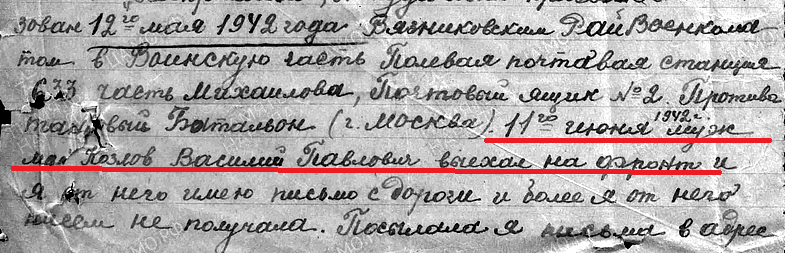 зован 12го мая 1942 года Вязниковским РайВоенкома
том в Воинскую часть Полевая почтавая станция
633 часть Михайлова, Почтовый ящик №2. Противо
танковый Батальон (г. Москва). 11го июня 1942 г. муж
мой Козлов Василий Павлович выехал на фронт и
я от него имею письмо с дороги и более я от него
писем не получала. Посылала я письма в адрес